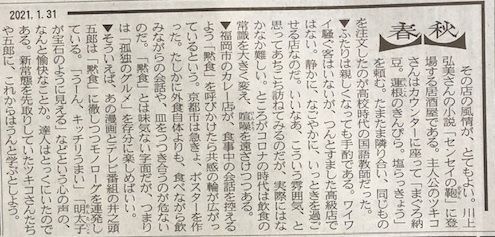 2021.1.31
春秋
その店の風情が、とてもよい。川上
弘美さんの小説「センセイの鞄」に登
場する居酒屋である。主人公のツキコ
さんはカウンターに座って「まぐろ納
豆。蓮根のきんぴら。塩らっきょう」
を頼む。たまたま隣り合い、同じもの
を注文したのが高校時代の国語教師だった。
▼ふたりは親しくなっても手酌である。ワイワ
イ騒ぐ客はいないが、つんとすました高級店で
はない。静かに、なごやかに、いっときを過ご
せる店なのだ。いいなあ、こういう雰囲気、と
思ってあちこち訪ねてみるのだが、実際にはな
かなか難しい。ところがコロナの時代は飲食の
常識を大きく変え、喧噪を遠ざけつつある。
▼福岡市のカレー店が、食事中の会話を控える
よう「黙食」を呼びかけたら共感の輪が広がっ
ているという。京都市は急きょ、ポスターを作
った。たしかに外食自体よりも、食べながら飲
みながらの会話や、皿をつつき合うのが危ない
のだ。「黙食」とは味気ない字面だが、つまり
は「孤独のグルメ」を存分に楽しめばいい。
▼そういえば、あの漫画とテレビ番組の井之頭
五郎は「黙食」に徹しつつモノローグを連発し
ている。「うーん、キッチリうまい」「明太子
が宝石のように見える」などという心の声の、
なんと愉快なことか。達人はとっくにいたので
ある。新常態を先取りしていたツキコさんたち
や五郎に、これからはうんと学ぶとしよう。